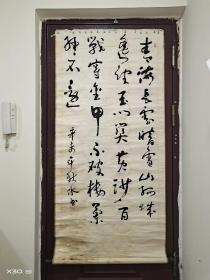 青海長雲暗雪山孤城
遥望玉門關黄沙百
戰穿金甲不破樓蘭
終不還